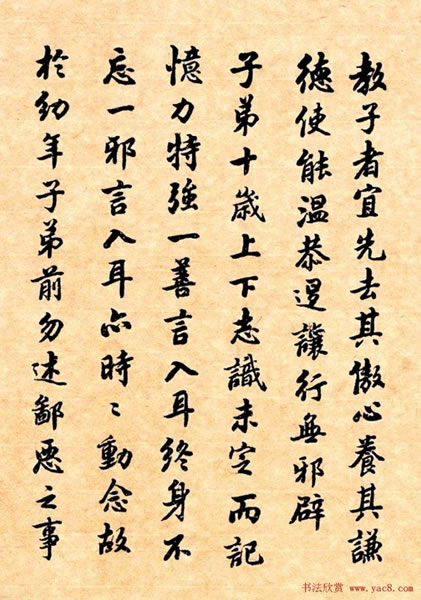 教子者宜先去其傲心養其謙
德使能溫恭遜讓行無邪辟
子弟十歲上下志識未定而記
憶力特強一善言入耳終身不
忘一邪言入耳亦時〻動念故
於幼年子弟前勿述鄙惡之事
书法欣赏 www.yac8.com